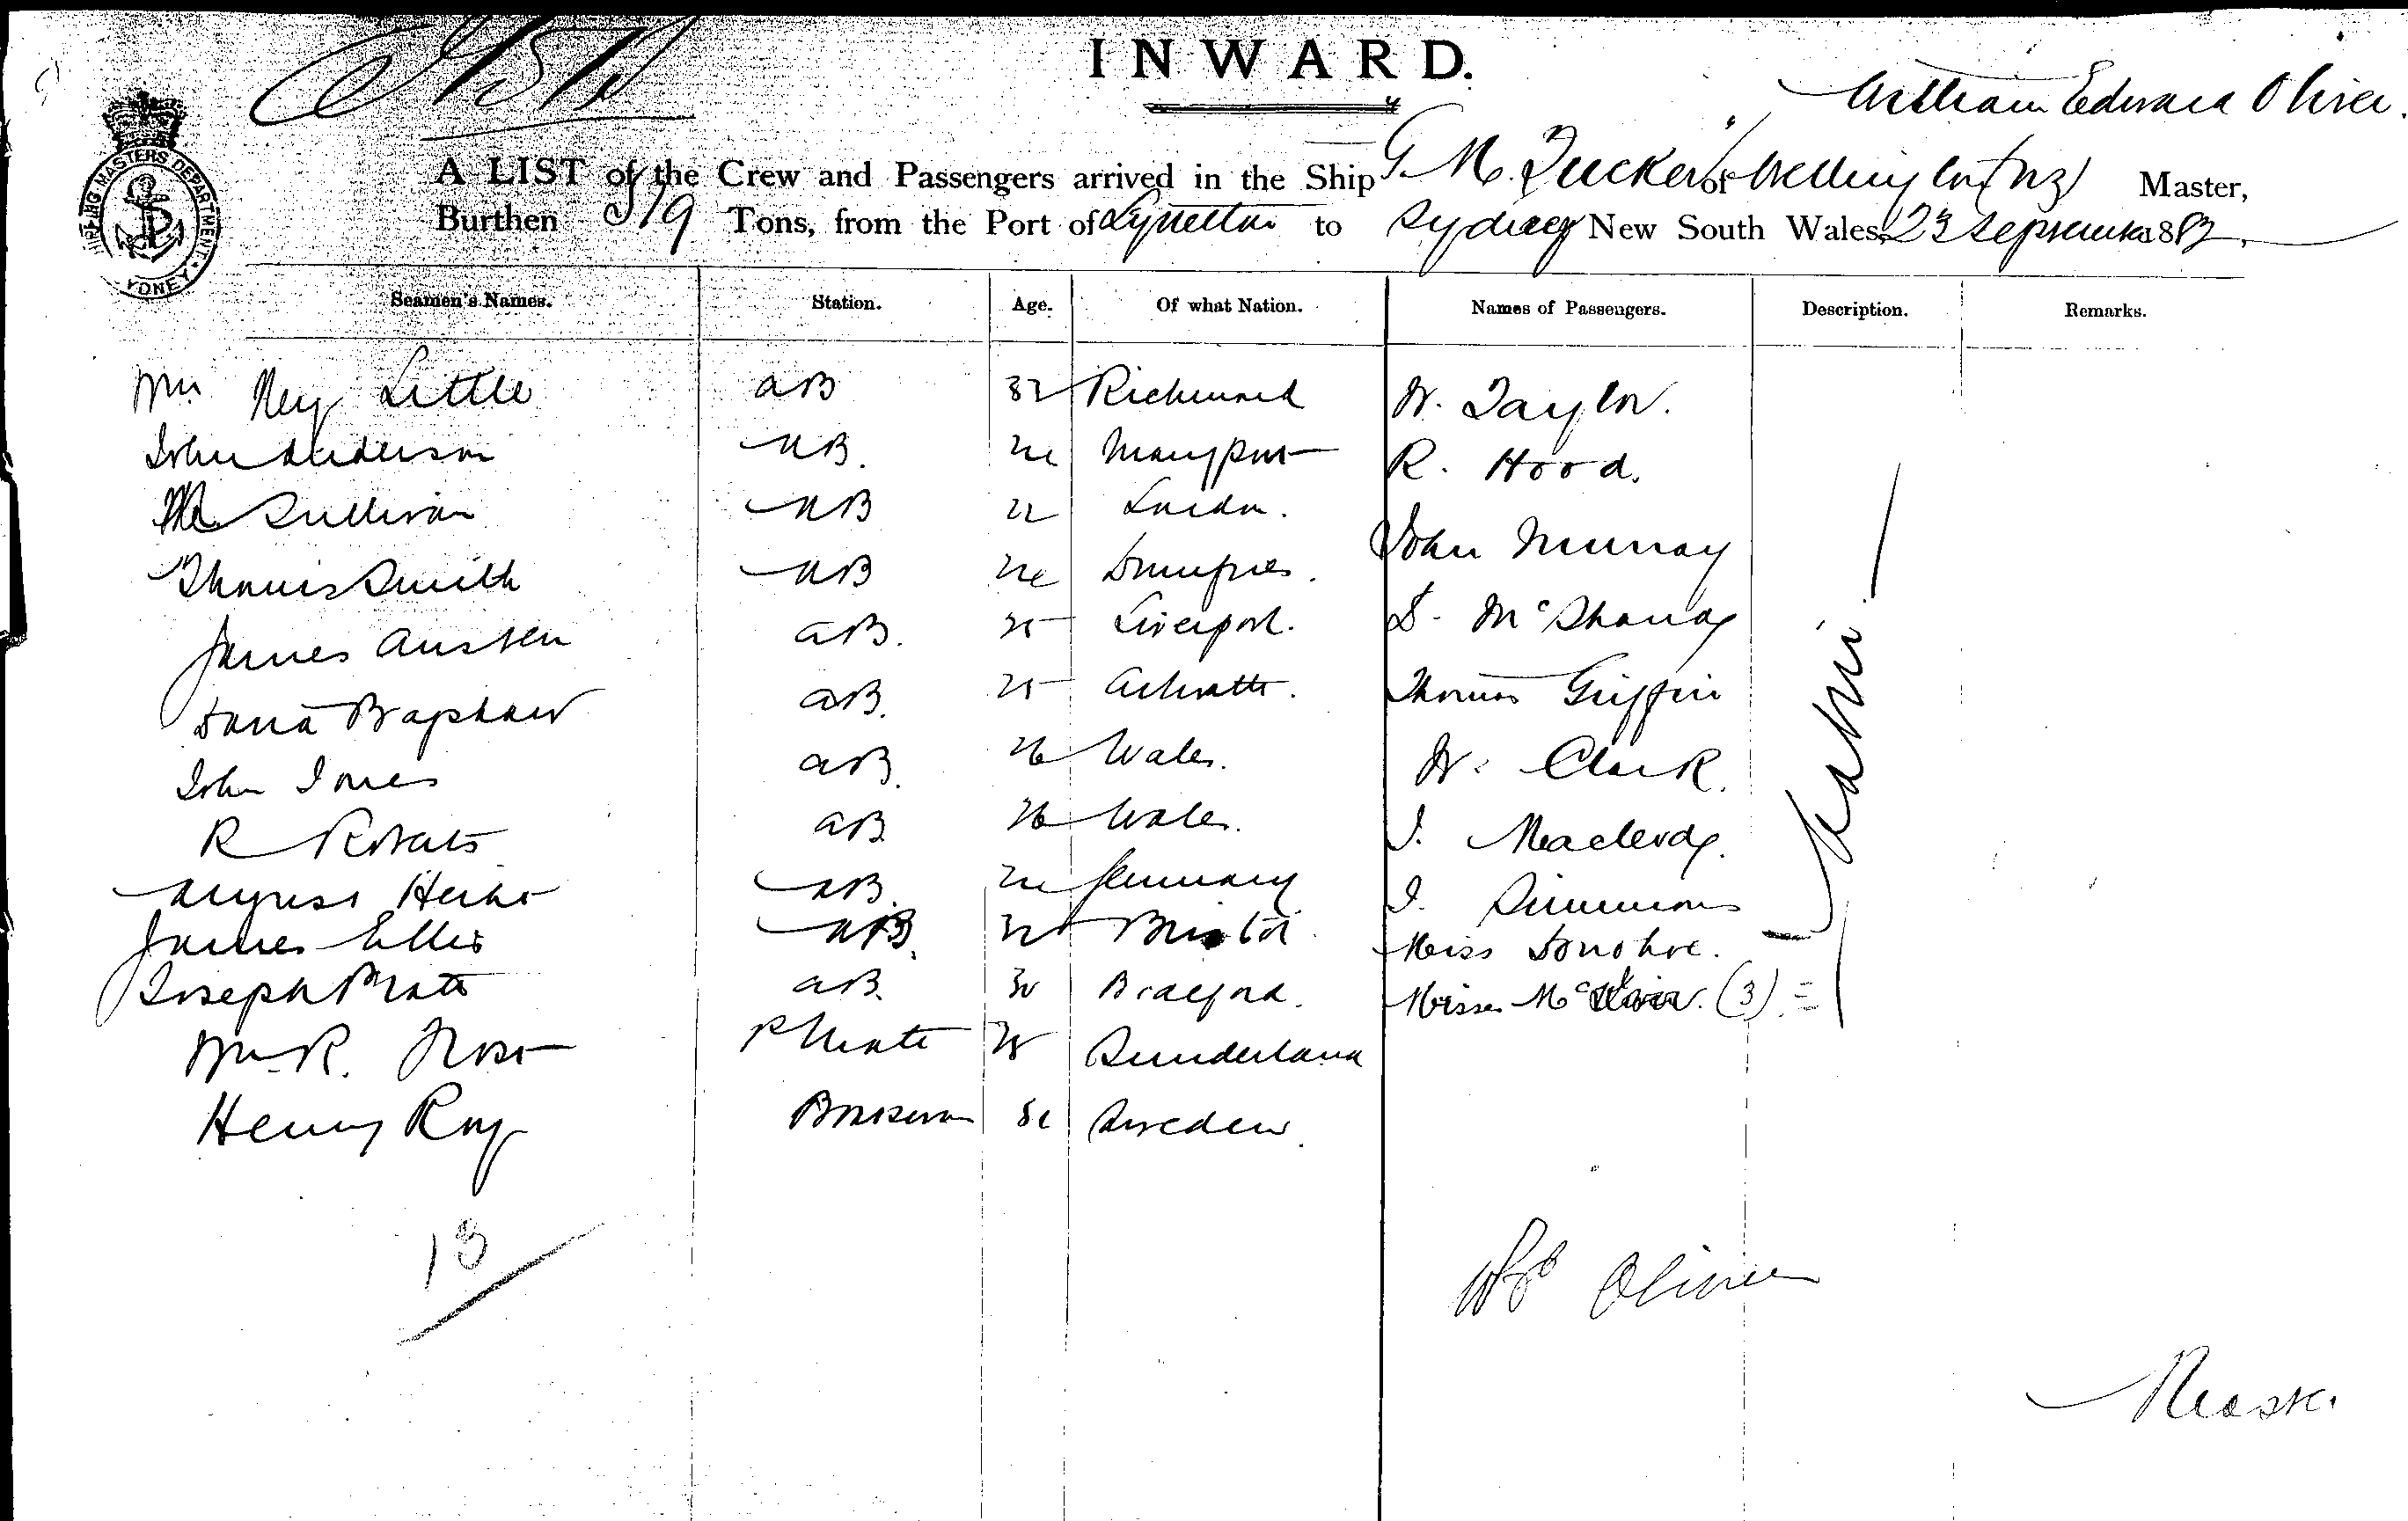 INWARD.
William Edward Oliver
A LIST of the Crew and Passengers arrived in the Ship "G. M. Tucker" of Wellington (NZ) Master,
Burthen 519 Tons, from the Port of Lyttelton to Sydney New South Wales, 23 September 1883.
SHIPPING MASTERS DEPARTMENT SYDNEY
Seamen's Names. Station. Age. Of what Nation. Names of Passengers. Description. Remarks.
Wm Little AB 32 Richmond W. Taylor.
John Anderson AB. Maryport R. Hood.
Sullivan AB 22 London.
John Murray
Thomas Smith AB Dumfries.
James Austen AB. 25 Liverpool.
David Bagshaw AB. 25 Thomas Griffin
John Jones AB. 26 Wales. W. Clark.
R Roberts AB 26 Wales. J. Macleod
AB. Germany J. Simmons
James Ellis AB. Bristol Miss Donohoe.
Joseph Pratt AB. 30 Bradford. Misses Mc (3)
Wm R. Mate 28 Sunderland
Henry Roy Boatswain Sweden.
13
Oliver